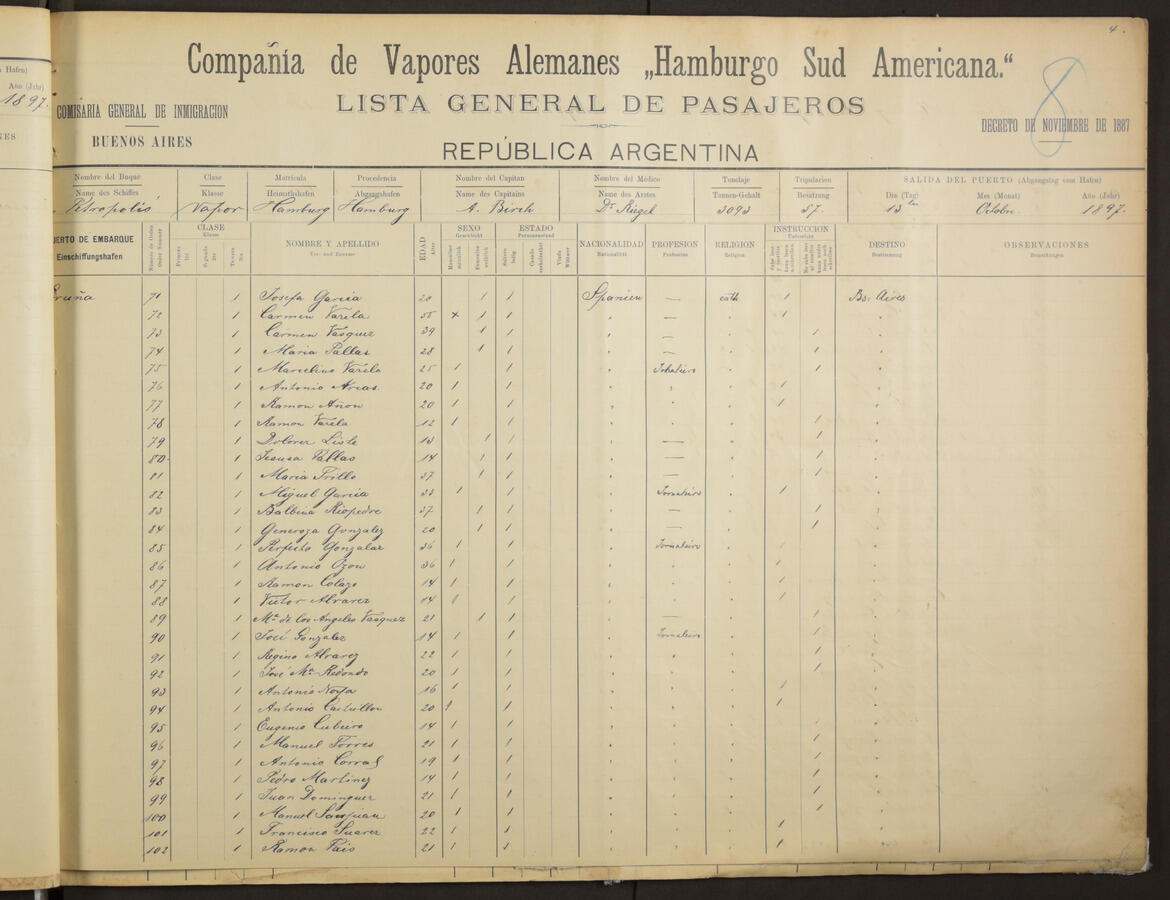 4.
8
Hafen)
Año (Jahr)
1897.
NES
Compañía de Vapores Alemanes „Hamburgo Sud Americana.“
LISTA GENERAL DE PASAJEROS
COMISARIA GENERAL DE INMIGRACION
BUENOS AIRES
DECRETO DE NOVIEMBRE DE 1887
REPÚBLICA ARGENTINA
Nombre del Buque Clase Matricula Procedencia Nombre del Capitan Nombre del Médico Tonelaje Tripulacion SALIDA DEL PUERTO (Abgangstag vom Hafen)
Name des Schiffes Klasse Heimathshafen Abgangshafen Name des Capitains Name des Arztes Tonnen-Gehalt Besatzung Dia (Tag) Mes (Monat) Año (Jahr)
Petropolis Vapor Hamburg Hamburg A. Birch Dr. Riegel 3093 57. 13 Octobre 1897.
UERTO DE EMBARQUE CLASE NOMBRE Y APELLIDO EDAD SEXO ESTADO NACIONALIDAD PROFESION RELIGION INSTRUCCION DESTINO OBSERVACIONES
Einschiffungshafen Klasse Vor- und Zuname Alter Geschlecht Personenstand Nationalität Profession Religion Unterricht Bestimmung Bemerkungen
ruña 71 1 Josefa Garcia 20 1 1 Spanien — cath 1 Bs. Aires
72 1 Carmen Varela 55 x 1 1 " — " 1 "
73 1 Carmen Vasquez 39 1 1 " — " 1 "
74 1 Maria Pallas 28 1 1 " — " 1 "
75 1 Marcelino Varela 25 1 1 " Jornaleiro " 1 "
76 1 Antonio Arcas. 20 1 1 " " " 1 "
77 1 Ramon Añon 20 1 1 " " " 1 "
78 1 Ramon Varela 12 1 1 " " " 1 "
79 1 Dolores Liste 13 1 1 " — " 1 "
80 1 Jesusa Pallas 14 1 1 " — " 1 "
81 1 Maria Trillo 37 1 1 " — " 1 "
82 1 Miguel Garcia 33 1 1 " Jornaleiro " 1 "
83 1 Balbina Riopedre 37 1 1 " — " 1 "
84 1 Generoza Gonzalez 20 1 1 " — " 1 "
85 1 Perfecto Gonzalaz 36 1 1 " Jornaleiro " 1 "
86 1 Antonio Ozon 36 1 1 " " " 1 "
87 1 Ramon Colazo 14 1 1 " " " 1 "
88 1 Victor Alvarez 14 1 1 " " " 1 "
89 1 Ma. de los Angeles Vasquez 23 1 1 " — " 1 "
90 1 José Gonzalez 14 1 1 " Jornaleiro " 1 "
91 1 Regino Alvarez 22 1 1 " " " 1 "
92 1 José Ma. Redondo 20 1 1 " " " 1 "
93 1 Antonio Noya 16 1 1 " " " 1 "
94 1 Antonio Castrillon 20 1 1 " " " 1 "
95 1 Eugenio Cubeiro 14 1 1 " " " 1 "
96 1 Manuel Torres 21 1 1 " " " 1 "
97 1 Antonio Corral 19 1 1 " " " 1 "
98 1 Pedro Martinez 14 1 1 " " " 1 "
99 1 Juan Dominguez 21 1 1 " " " 1 "
100 1 Manuel Sanjuan 20 1 1 " " " 1 "
101 1 Francisco Suarez 22 1 1 " " " 1 "
102 1 Ramon Pais 21 1 1 " " " 1 "